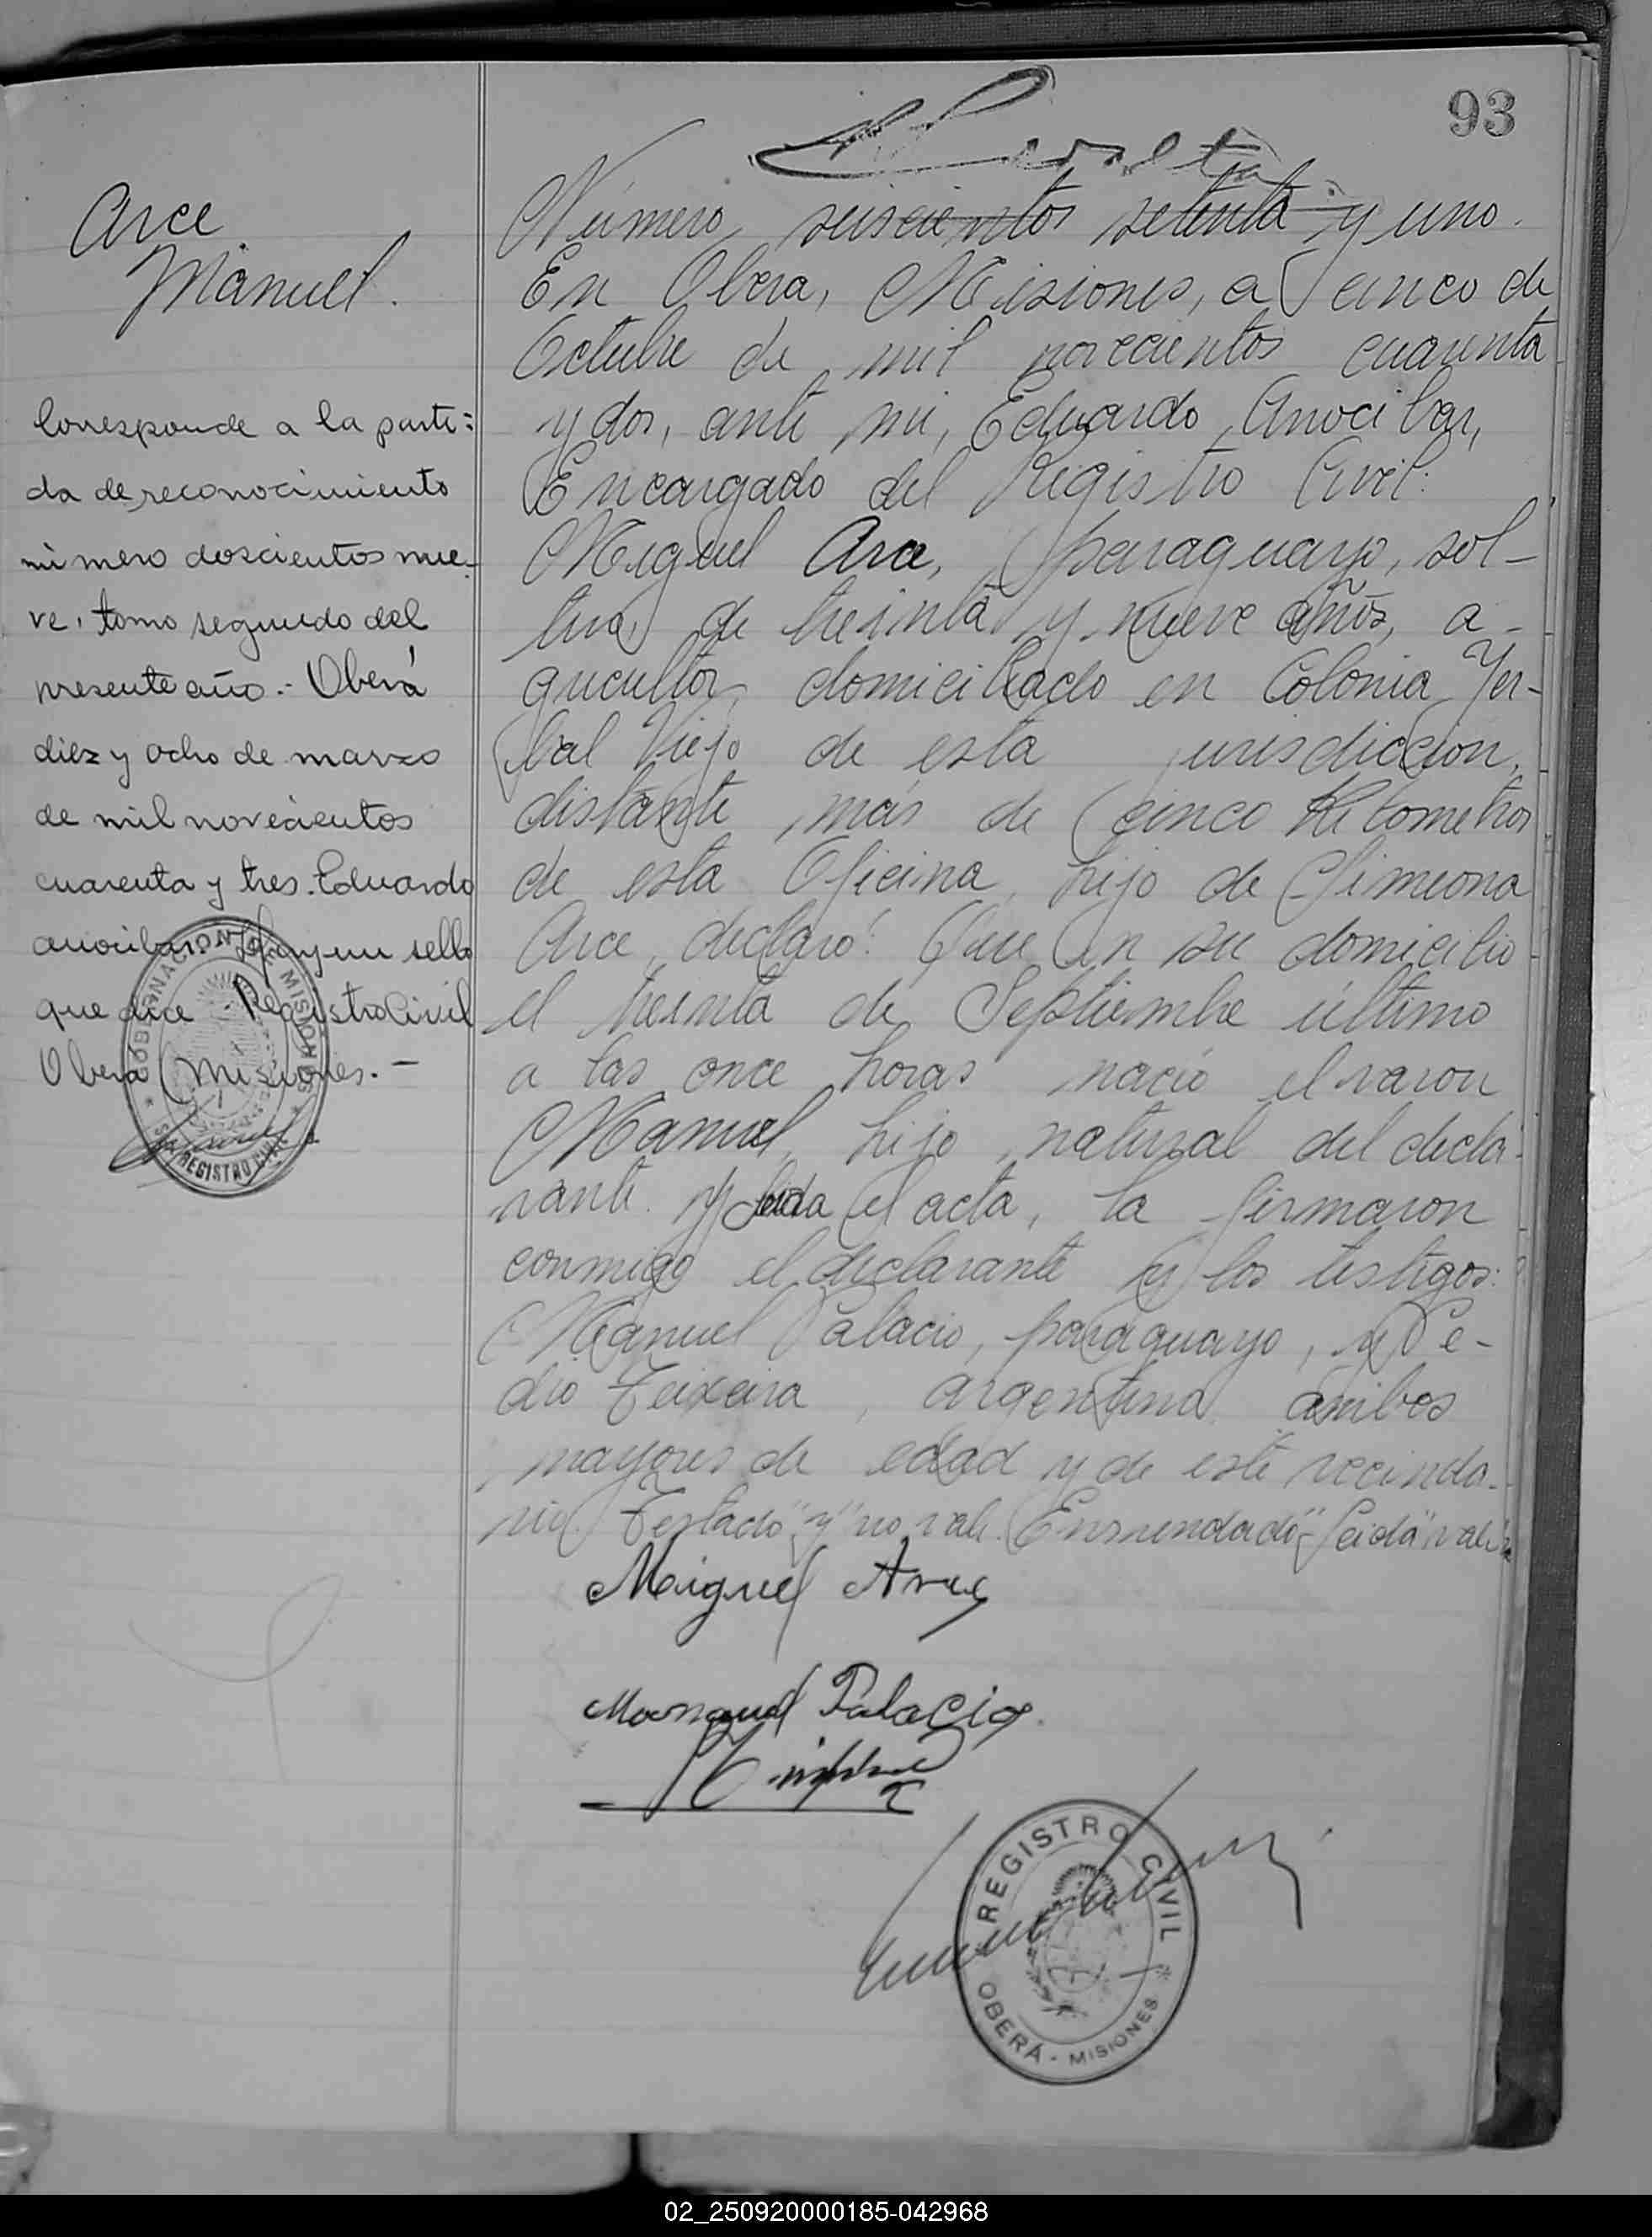 93
Arce
Manuel.
Corresponde a la parti=
da de reconocimiento
número doscientos nue-
ve, tomo segundo del
presente año.- Oberá
diez y ocho de marzo
de mil novecientos
cuarenta y tres. Eduardo
Anocibar. Hay un sello
que dice Registro Civil
Oberá (Misiones.-
GOBERNACION DE MISIONES
REGISTRO CIVIL
Número seiscientos setenta y uno.
En Obera, Misiones, a cinco de
Octubre de mil novecientos cuarenta
y dos, ante mi, Eduardo Anocibar,
Encargado del Registro Civil:
Miguel Arce, paraguayo, sol-
tero, de treinta y nueve años, a-
gricultor, domiciliado en Colonia Yer-
bal Viejo de esta jurisdiccion,
distante más de cinco kilometros
de esta Oficina, hijo de Simeona
Arce, declaró: Que en su domicilio
el treinta de Septiembre último
a las once horas nació el varon
Manuel, hijo natural del decla-
rante. y Leida el acta, la firmaron
conmigo el declarante y los testigos:
Manuel Palacio, paraguayo, y Pe-
dro Teixeira, argentino, ambos
mayores de edad y de este vecinda-
rio. Testado "y" no vale. Enmendado "Leida" vale
Miguel Arce
Manuel Palacio
REGISTRO CIVIL
OBERÁ - MISIONES
02_250920000185-042968